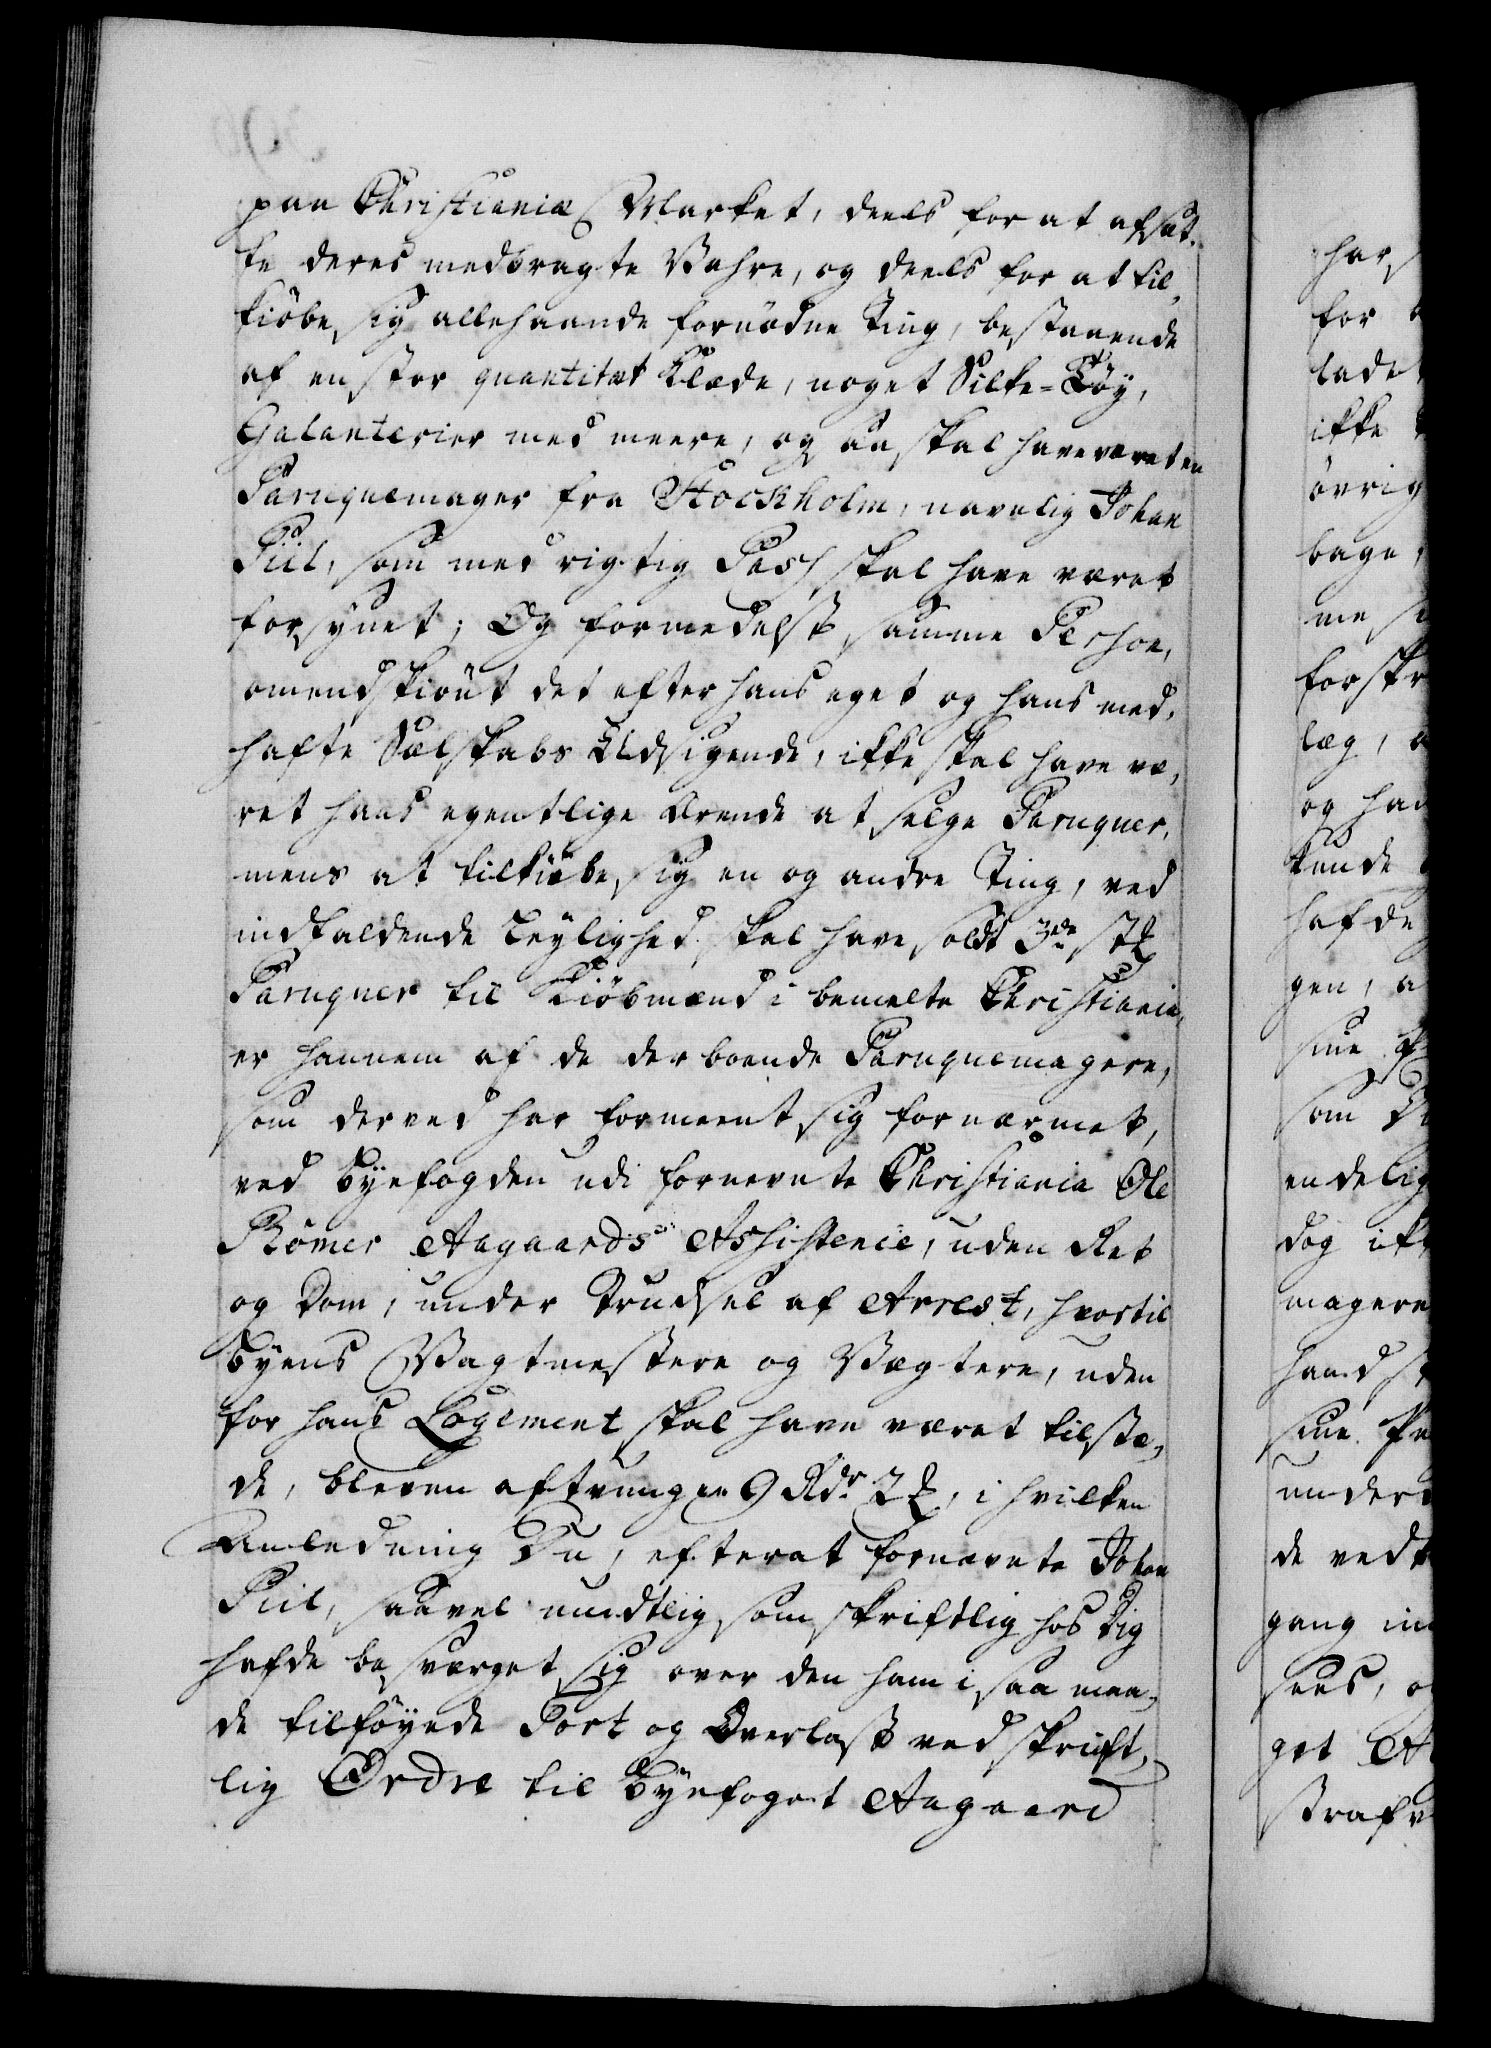 paa Christiania Market, deels for at afsæt,
te deres medbragte Wahre, og deels for at til,
kiöbe sig allehaande fornödne Ting, bestaaende
af en stor quantitæt Klæde, noget Silke-Töy,
Galanterier med meere, og da skal have været en
Paruquemager fra Stockholm, navnlig Johan
Piil, som med rigtig Pass skal have været
forsÿnet; Og formedelst samme Person,
omendskiönt det efter hans eget og hans med,
hafte Sælskabs Udsigende, ikke skal have væ,
ret hans egentlige Ærende at selge Paruquer,
mens at tilkiöbe sig en og andre Ting, ved
indfaldende Leylighed skal have soldt 3de st
Paruquer til Kiöbmænd i bemelte Christiania,
er hannem af de der boende Paruquemagere,
som derved har formeent sig fornærmet,
ved Byefogden udi fornevnte Christiania Ole
Römer Aagaards Assistence, uden Ret
og Dom, under Trudsel af Arrest, hvortil
Byens Wagtmestere og Wægtere, uden
for hans Logement skal have været tilstæ,
de, bleven aftvungen 9 Rdr 2 , i hvilken
Anledning Du, efterat fornævnte Johan
Piil, saavel mundtlig som skriftlig hos Dig
hafde besværget sig over den ham i saa maa,
de tilföyede Tort og Overlast ved skrift,
lig Ordre til Byefoget Aagaard
har
for
lade
ikke
övrig
bage,
me
forskr
læg,
og han
kunde
hafde
gen, a
sine
som
endelig
dog ik
magere
hand
sine
under
de ved
gang in
sees, o
get A
straf